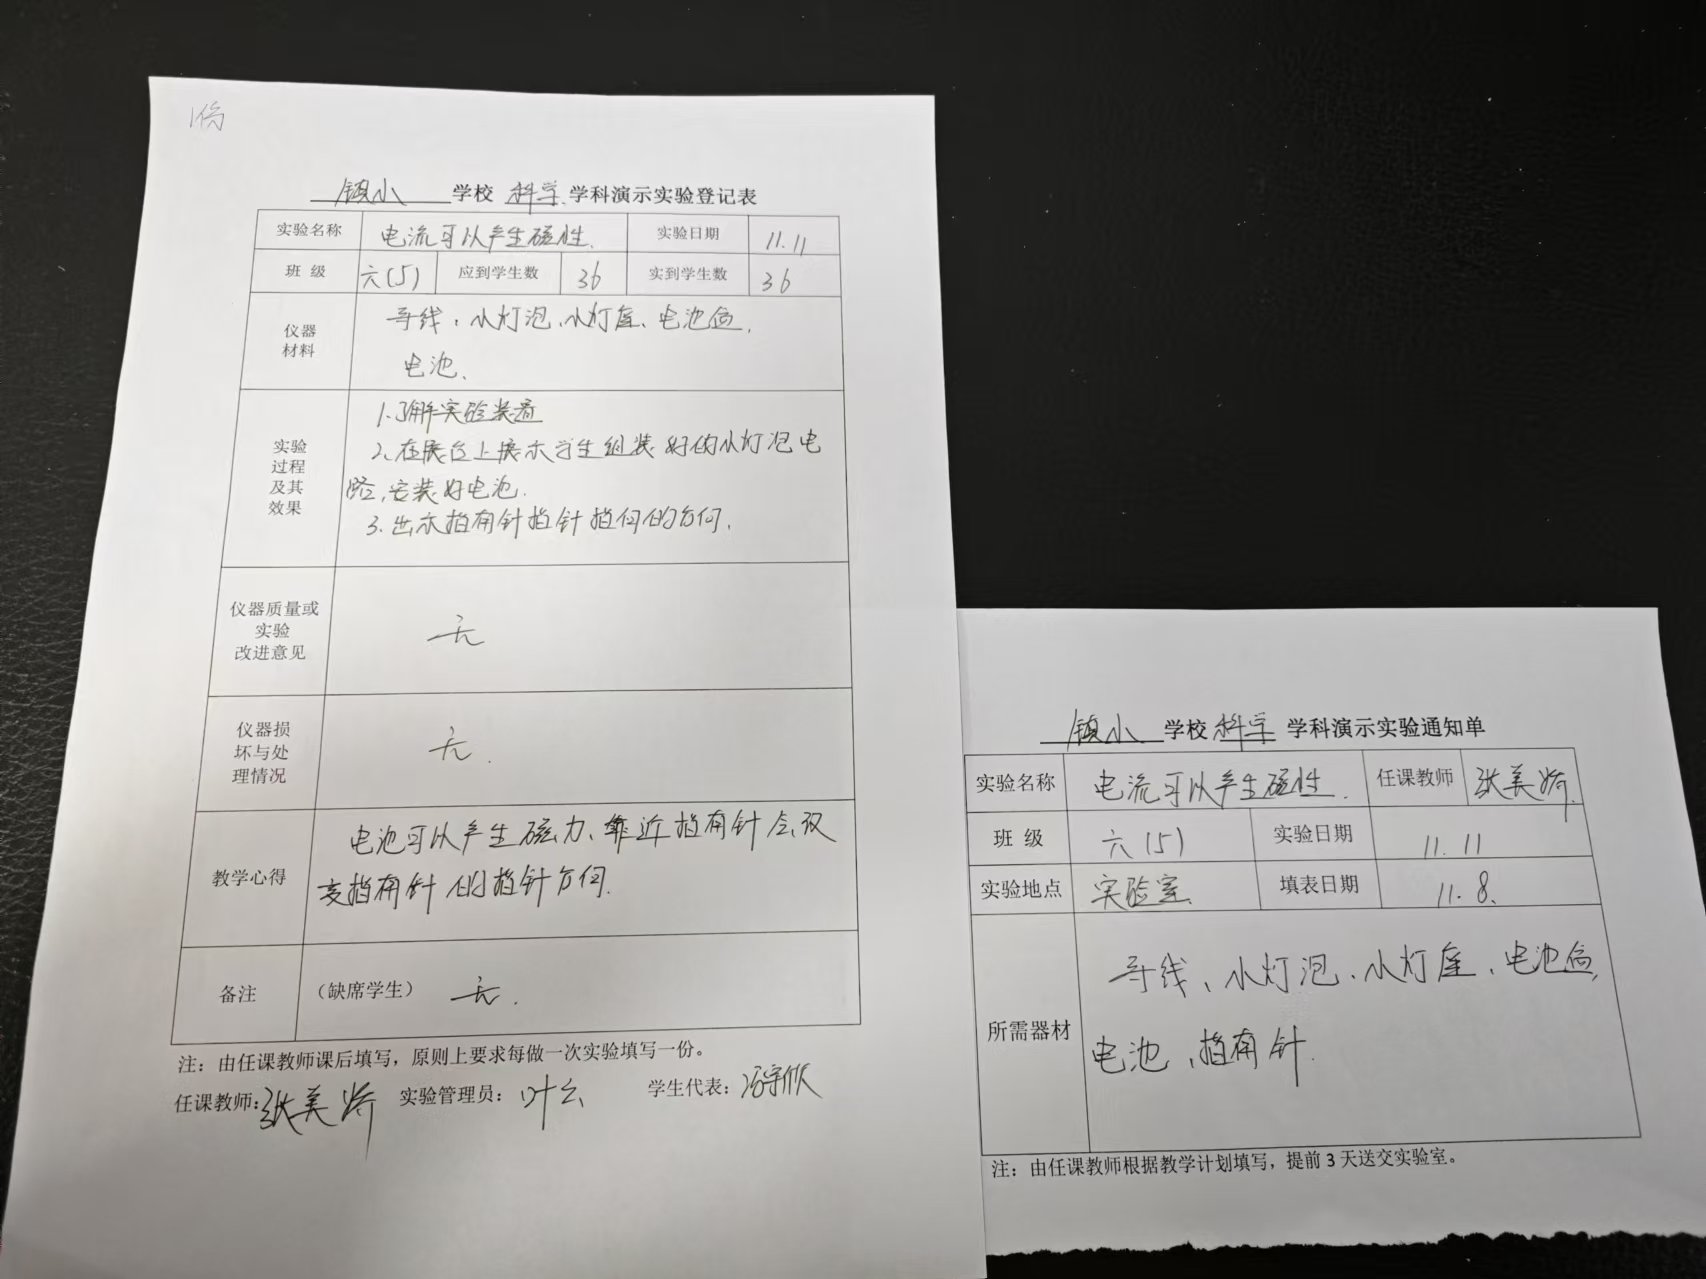 1份
镇小 学校 科学 学科演示实验登记表
实验名称 电流可以产生磁性. 实验日期 11.11
班 级 六(5) 应到学生数 36 实到学生数 36
仪器
材料
导线、小灯泡、小灯座、电池盒、
电池、
实验
过程
及其
效果
1.了解实验装置
2.在展台上展示学生组装好的小灯泡电
路,安装好电池.
3.出示指南针指针指向的方向.
仪器质量或
实验
改进意见
无
仪器损
坏与处
理情况
无.
教学心得
电池可以产生磁力、靠近指南针会改
变指南针的指针方向.
备注 (缺席学生) 无.
注:由任课教师课后填写,原则上要求每做一次实验填写一份。
任课教师:张美娇 实验管理员:叶云 学生代表:
镇小 学校 科学 学科演示实验通知单
实验名称 电流可以产生磁性. 任课教师 张美娇.
班 级 六(5) 实验日期 11.11
实验地点 实验室. 填表日期 11.8.
所需器材
导线、小灯泡、小灯座、电池盒、
电池、指南针.
注:由任课教师根据教学计划填写,提前3天送交实验室。